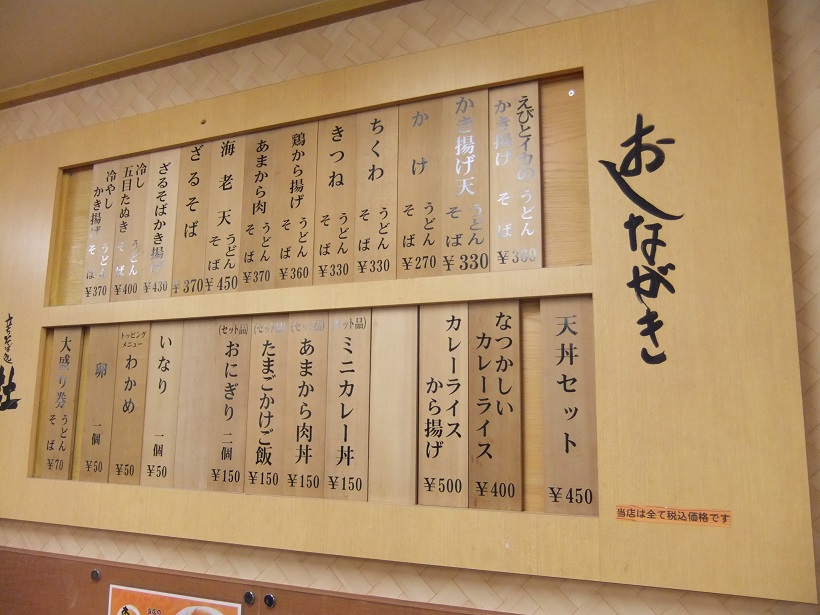 おしながき
えびとイカの
かき揚げ
うどん
そば
かき揚げ天
うどん
そば
¥330
かけ
うどん
そば
¥270
ちくわ
うどん
そば
¥330
きつね
うどん
そば
¥330
鶏から揚げ
うどん
そば
¥360
あまから肉
うどん
そば
¥370
海老天
うどん
そば
¥450
ざるそば
¥370
ざるそばかき揚げ
¥430
冷し
五目たぬき
うどん
そば
¥400
冷やし
かき揚げ
うどん
そば
¥370
天丼セット
¥450
なつかしい
カレーライス
¥400
カレーライス
から揚げ
¥500
(セット品)
ミニカレー丼
¥150
(セット品)
あまから肉丼
¥150
(セット品)
たまごかけご飯
¥150
(セット品)
おにぎり 二個
¥150
いなり 一個
¥50
トッピング
メニュー
わかめ
¥50
卵 一個
¥50
大盛り券
うどん
そば
¥70
当店は全て税込価格です